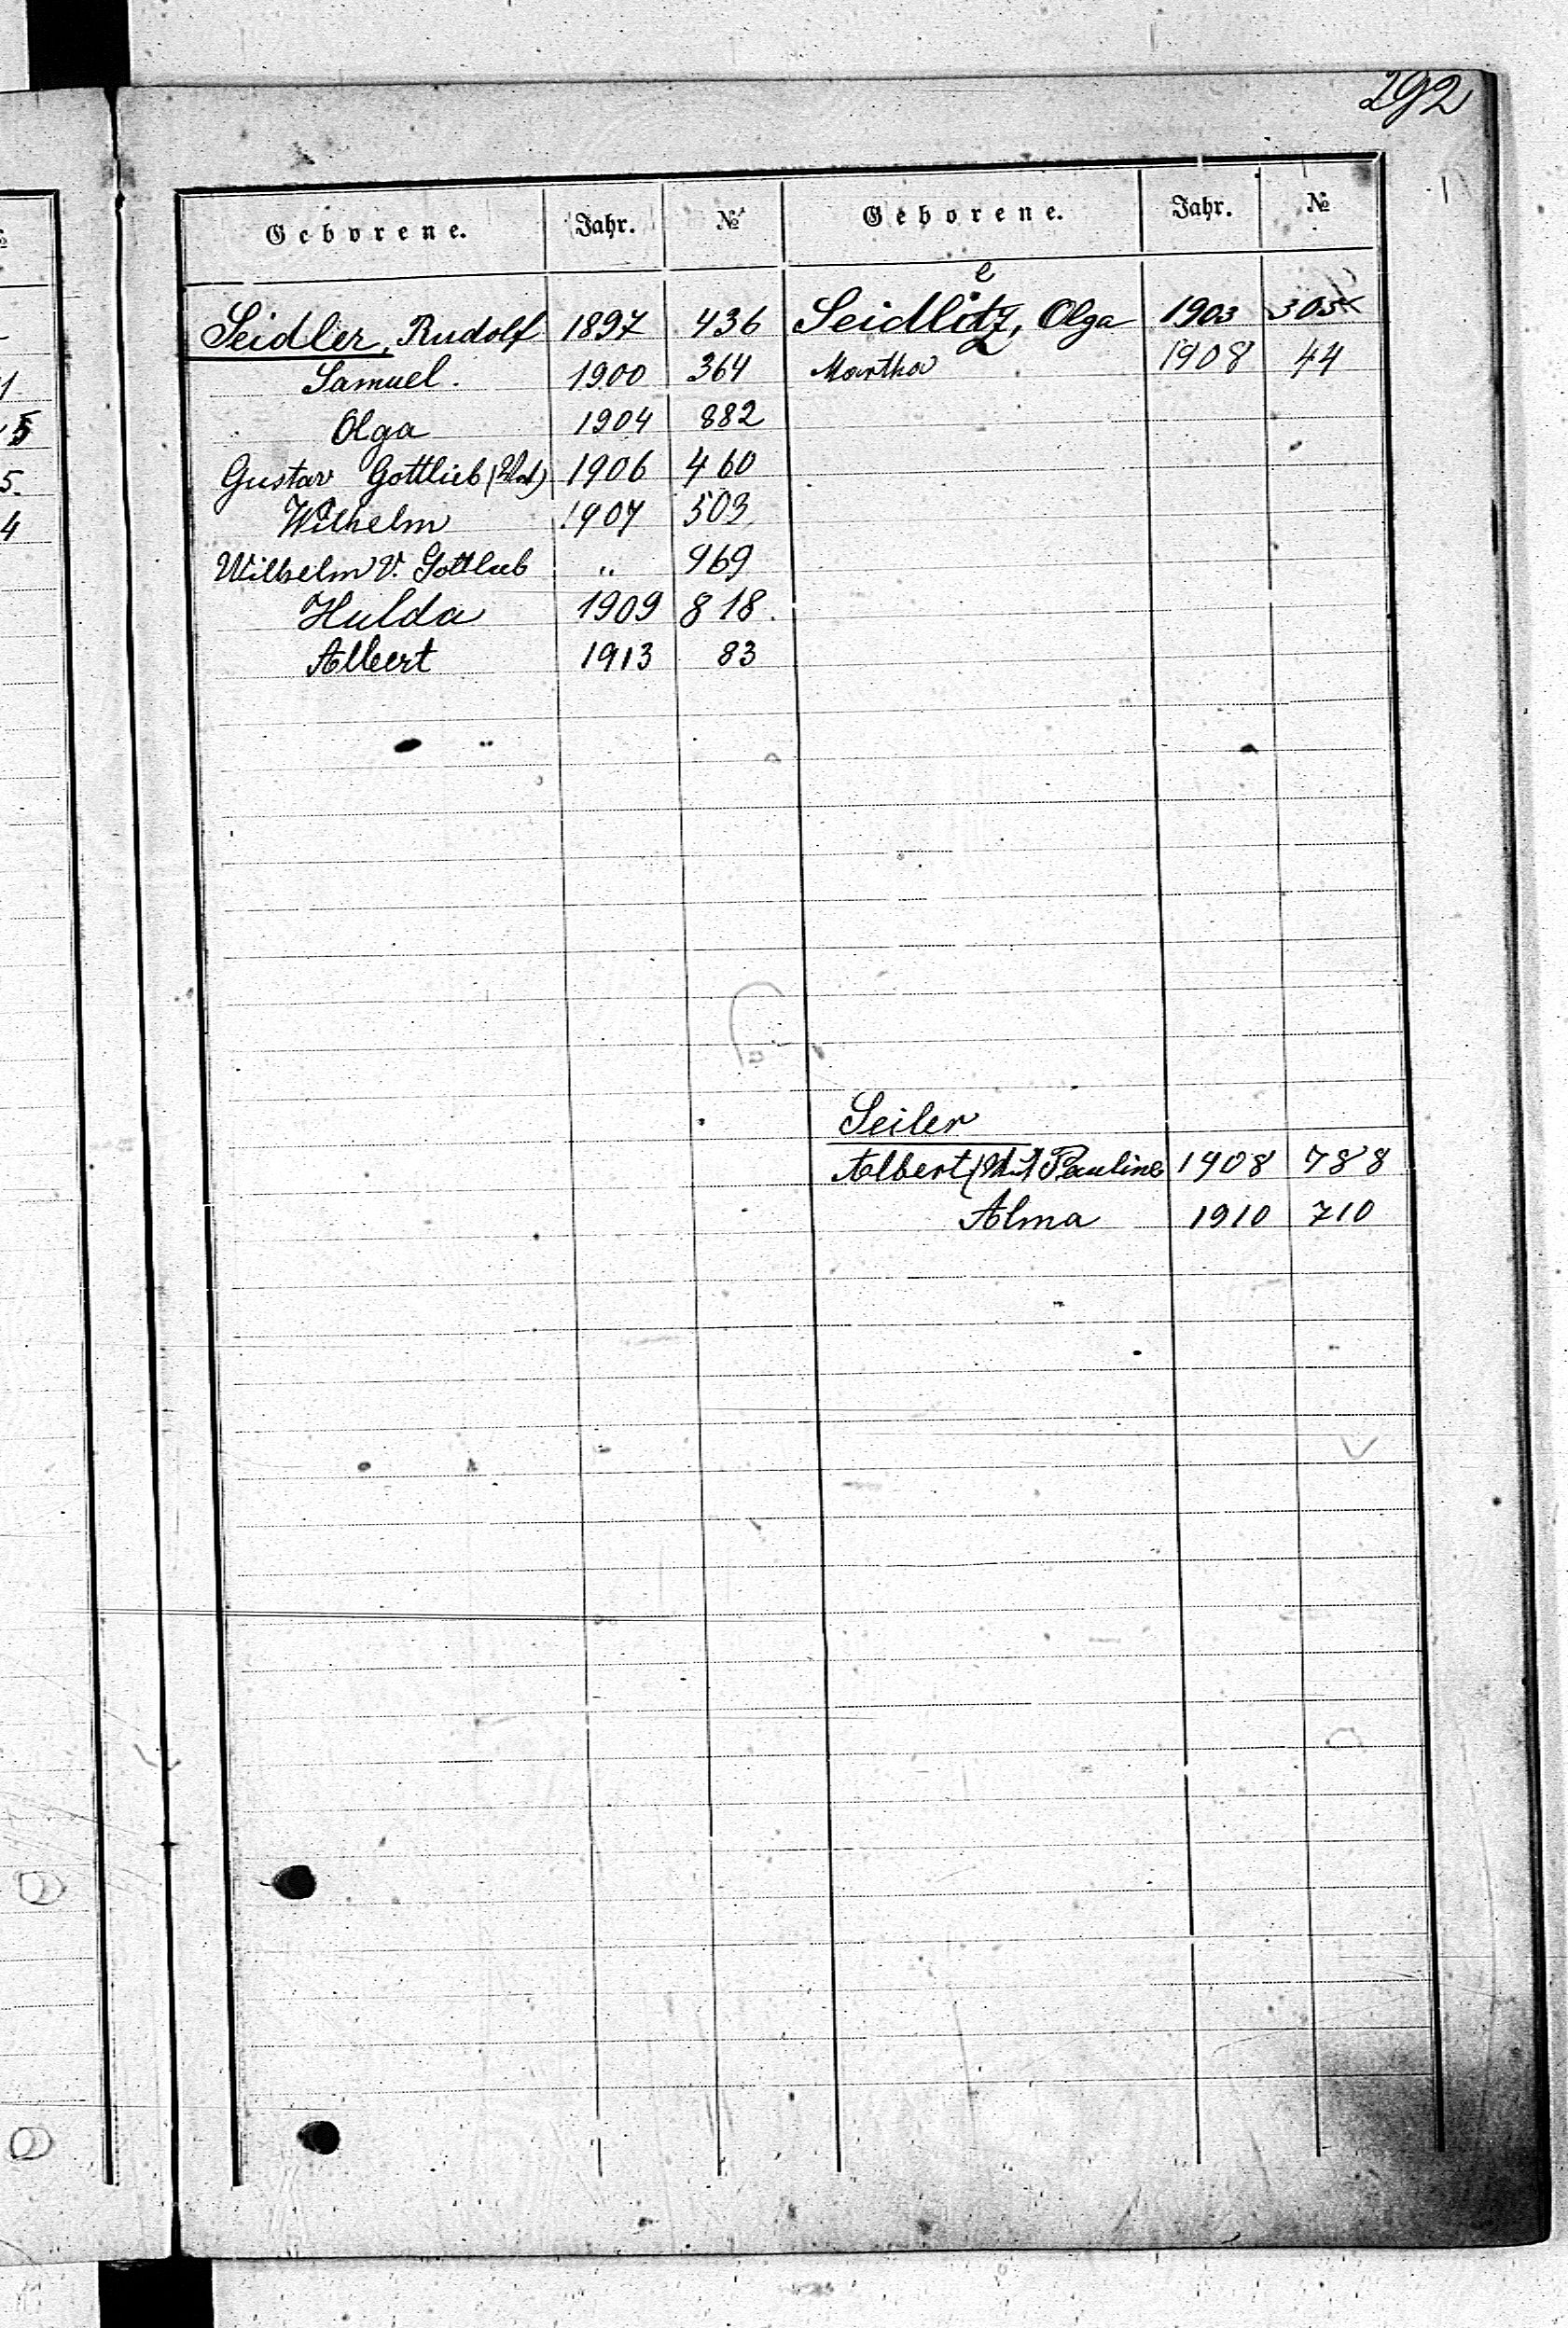 292
Geborene. Jahr. № Geborene. Jahr. №
Seidler, Rudolf 1897 436
Samuel. 1900 364
Olga 1904 882
Gustav Gottlieb 1906 460
Wilhelm 1907 503
Wilhelm V. Gottlieb " 969
Hulda 1909 818.
Albert 1913 83
Seidlitz, Olga 1903 305
e
Martha 1908 44
Seiler
Albert Pauline 1908 788
Alma 1910 710
№
1.
5
5.
4